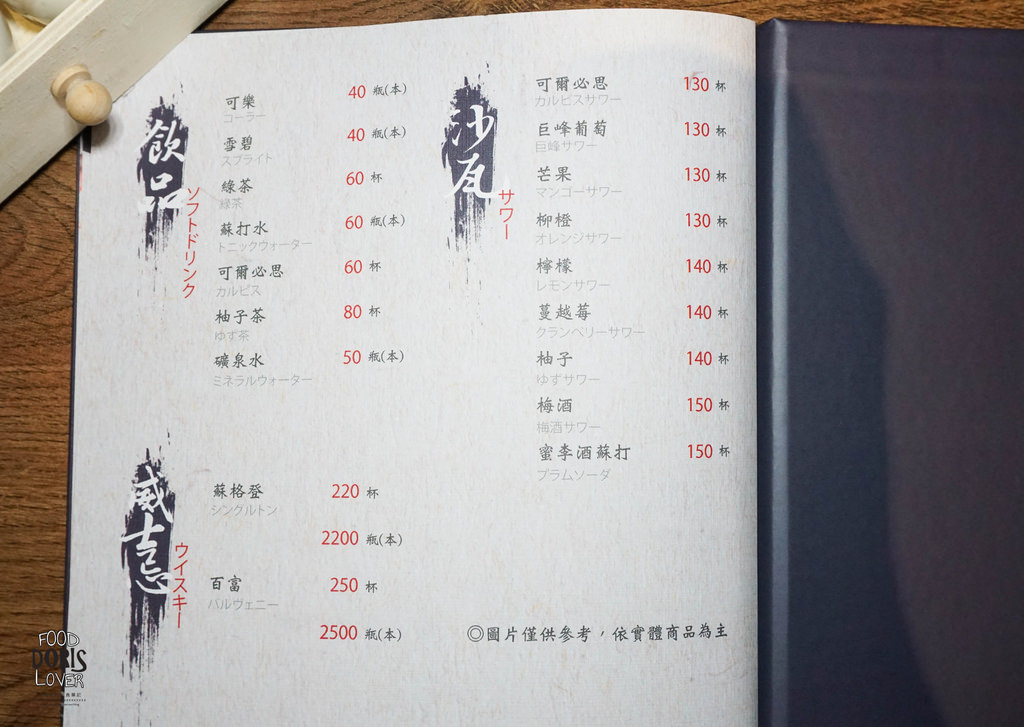 飲品
ソフトドリンク
可樂 40 瓶(本)
コーラー
雪碧 40 瓶(本)
スプライト
綠茶 60 杯
綠茶
蘇打水 60 瓶(本)
トニックウォーター
可爾必思 60 杯
カルピス
柚子茶 80 杯
ゆず茶
礦泉水 50 瓶(本)
ミネラルウォーター
威士忌
ウイスキー
蘇格登 220 杯
シングルトン
2200 瓶(本)
百富 250 杯
バルヴェニー
2500 瓶(本)
沙瓦
サワー
可爾必思 130 杯
カルピスサワー
巨峰葡萄 130 杯
巨峰サワー
芒果 130 杯
マンゴーサワー
柳橙 130 杯
オレンジサワー
檸檬 140 杯
レモンサワー
蔓越莓 140 杯
クランベリーサワー
柚子 140 杯
ゆずサワー
梅酒 150 杯
梅酒サワー
蜜李酒蘇打 150 杯
プラムソーダ
◎圖片僅供參考，依實體商品為主
FOOD
DORIS
LOVER